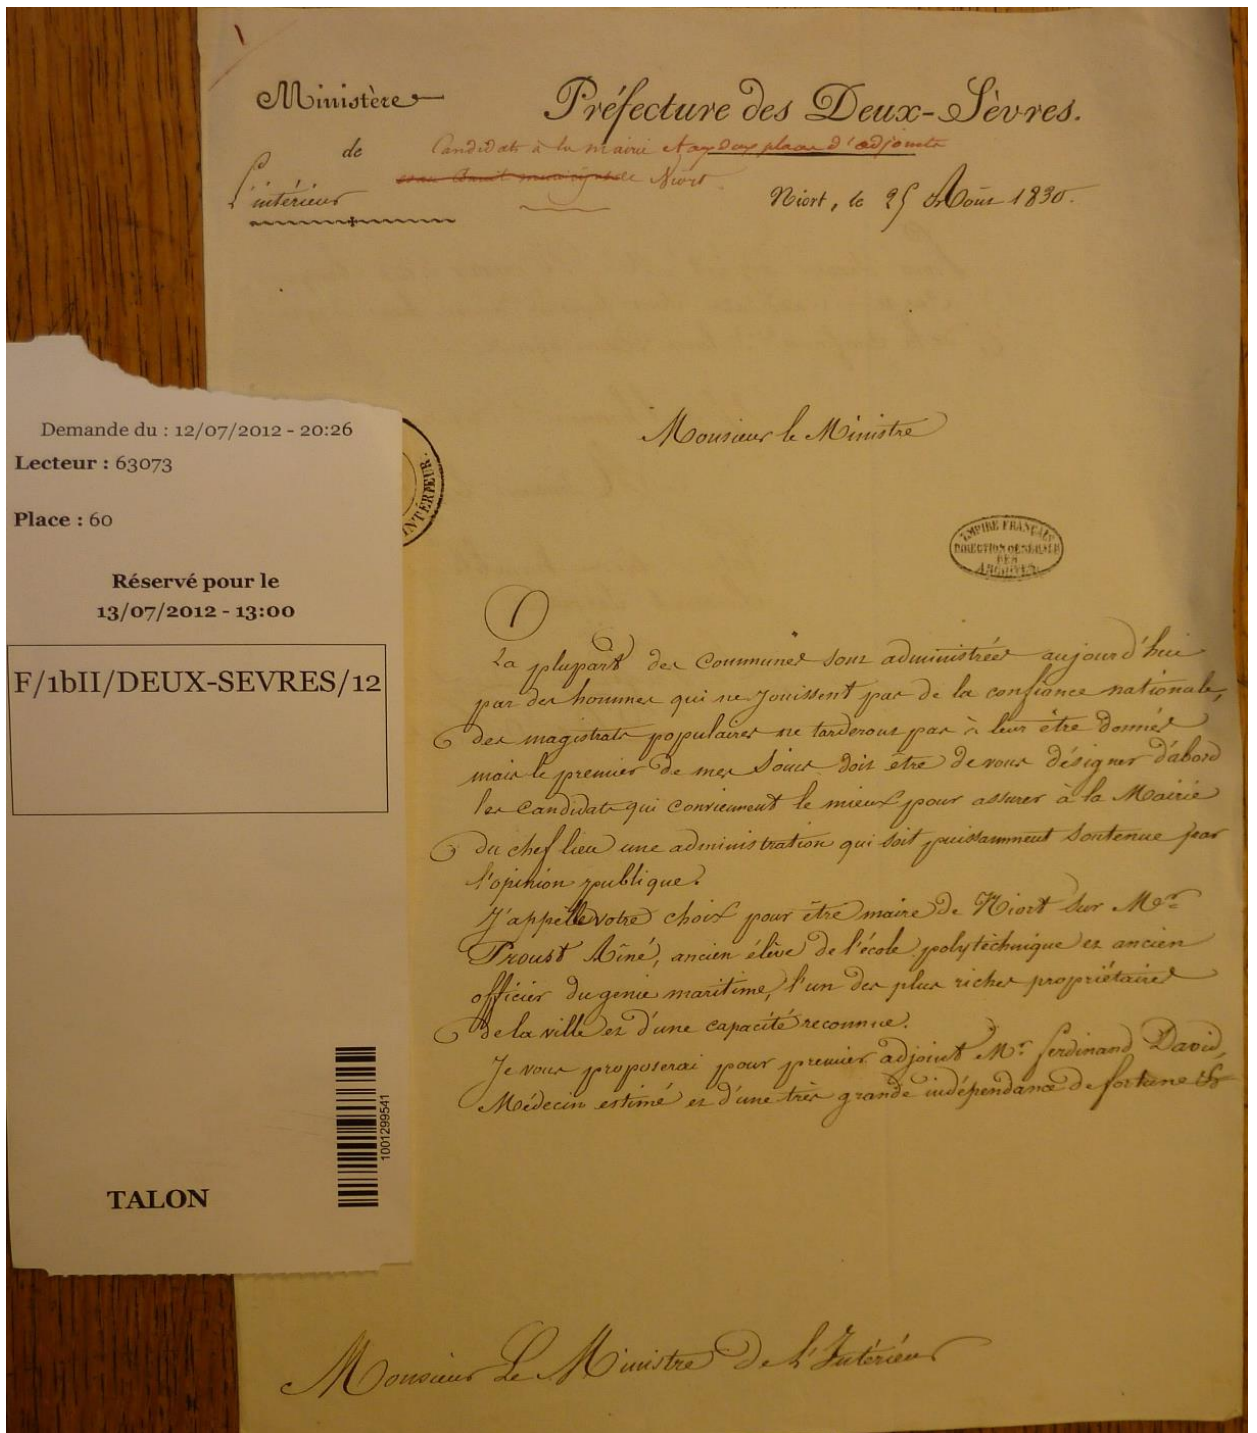 Ministère
de
L'intérieur
Préfecture des Deux-Sèvres.
Candidats à la mairie et aux deux places d'adjoints
de Niort.
Niort, le 25 Août 1830.
Demande du : 12/07/2012 - 20:26
Lecteur : 63073
Place : 60
Réservé pour le
13/07/2012 - 13:00
F/1bII/DEUX-SEVRES/12
TALON
1001299541
INTÉRIEUR.
Monsieur le Ministre
EMPIRE FRANÇAIS
DIRECTION GÉNÉRALE
DES
ARCHIVES
La plupart des Communes sont administrées aujourd'hui
par des hommes qui ne jouissent pas de la confiance nationale,
des magistrats populaires ne tarderont pas à leur être donnés
mais le premier de mes soins doit être de vous désigner d'abord
les candidats qui conviennent le mieux pour assurer à la Mairie
du chef lieu une administration qui soit puissamment soutenue par
l'opinion publique.
J'appelle votre choix pour être maire de Niort sur Mr
Proust Aîné, ancien élève de l'école polytechnique et ancien
officier du genie maritime, l'un des plus riches propriétaires
de la ville et d'une capacité reconnue.
Je vous proposerai pour premier adjoint Mr. ferdinand David,
Médecin estimé et d'une très grande indépendance de fortune &
Monsieur Le Ministre De L'Intérieur